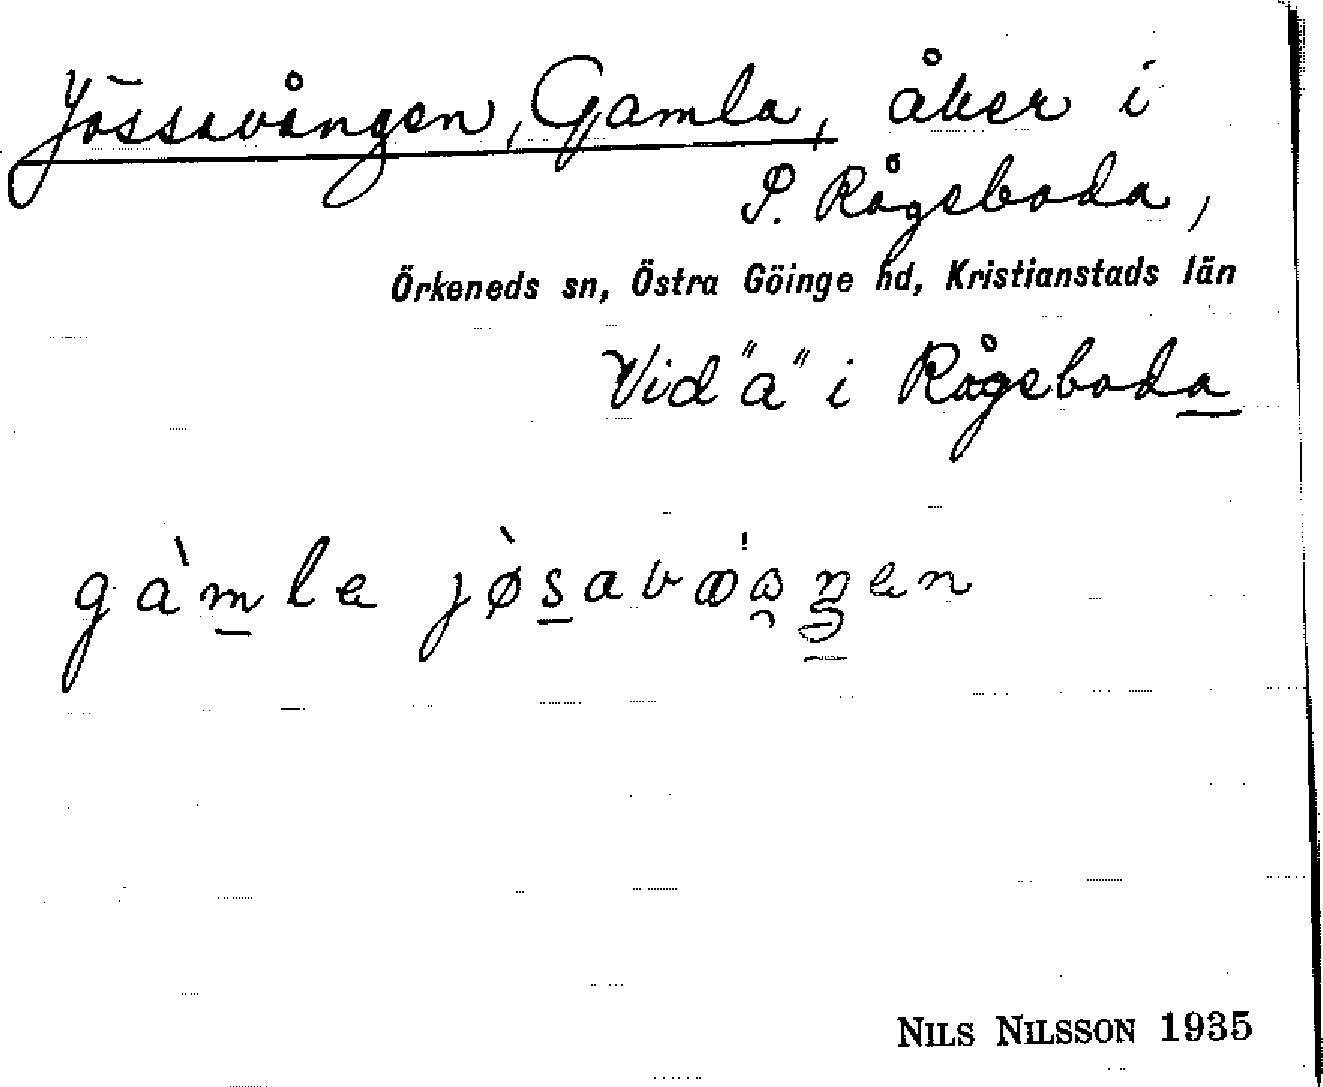 Jössavången, Gamla, åker i
S. Rågeboda,
Örkeneds sn, Östra Göinge hd, Kristianstads län
Vid "a" i Rågeboda
NILS NILSSON 1935